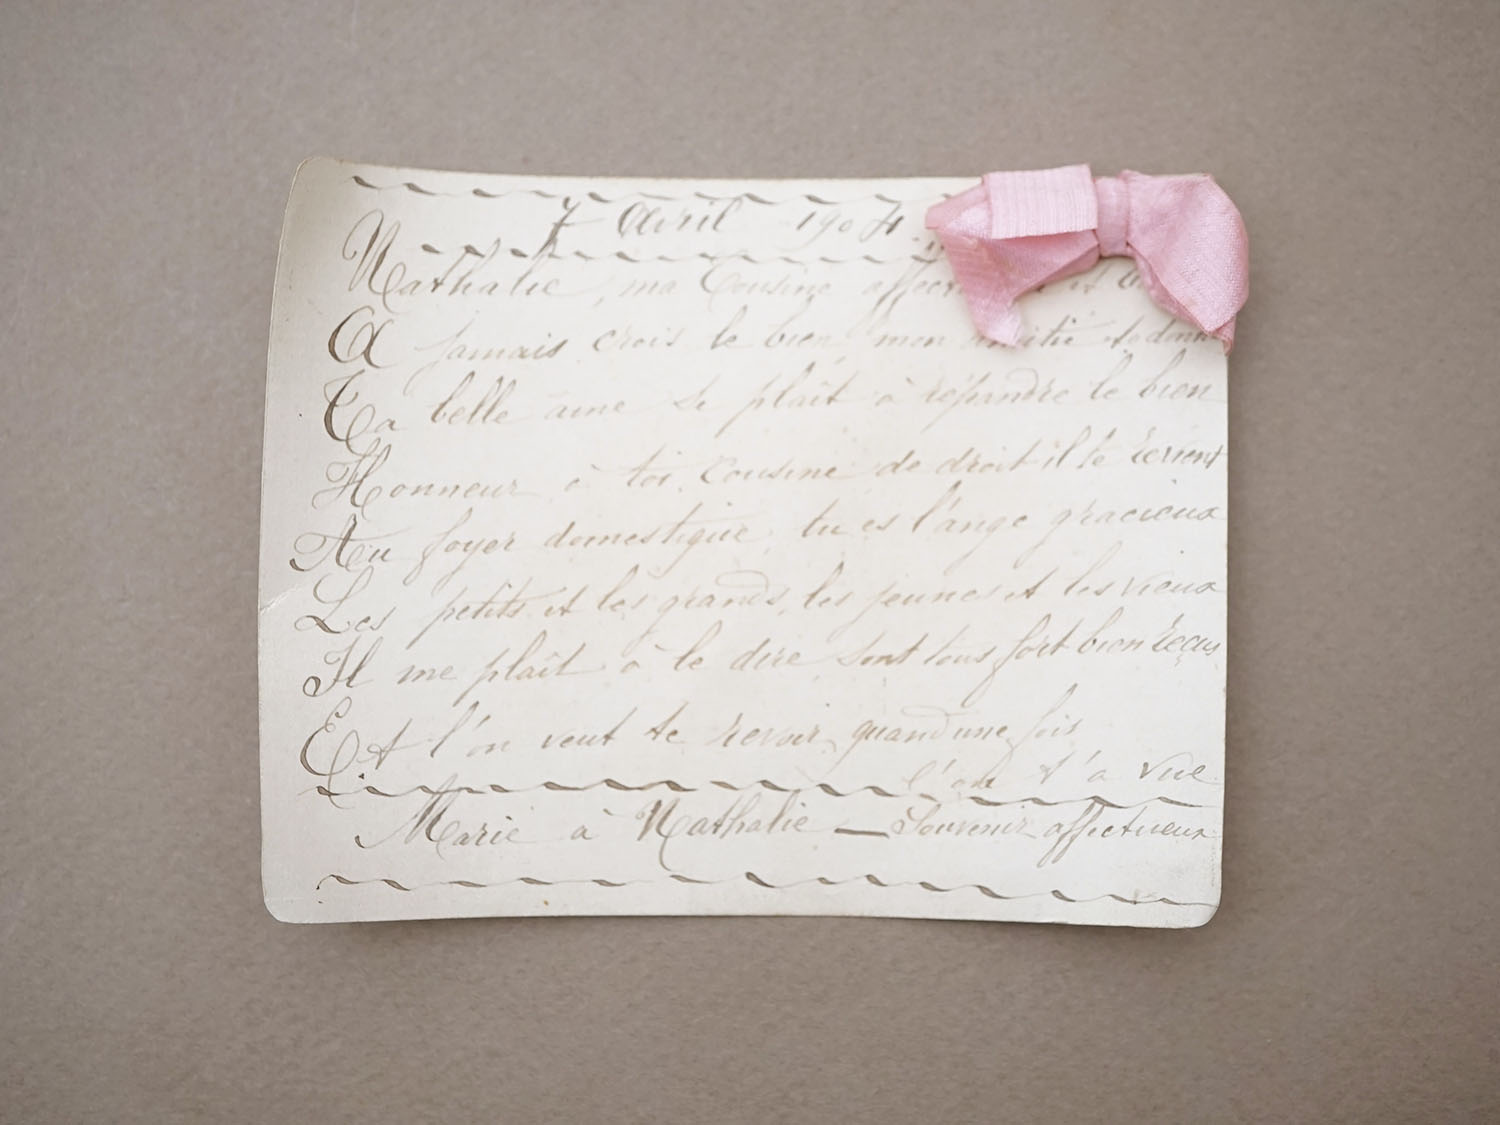 7 Avril 1904
Nathalie, ma Cousine
A jamais crois le bien, mon amitié te donne
Ta belle ame se plaît à répandre le bien
Honneur à toi, Cousine de droit il te revient
Au foyer domestique, tu es l'ange gracieux
Les petits et les grands, les jeunes et les vieux
Il me plaît à le dire sont tous fort bien reçus
Et l'on veut te revoir, quand une fois
l'on t'a vue
Marie à Nathalie — Souvenir affectueux